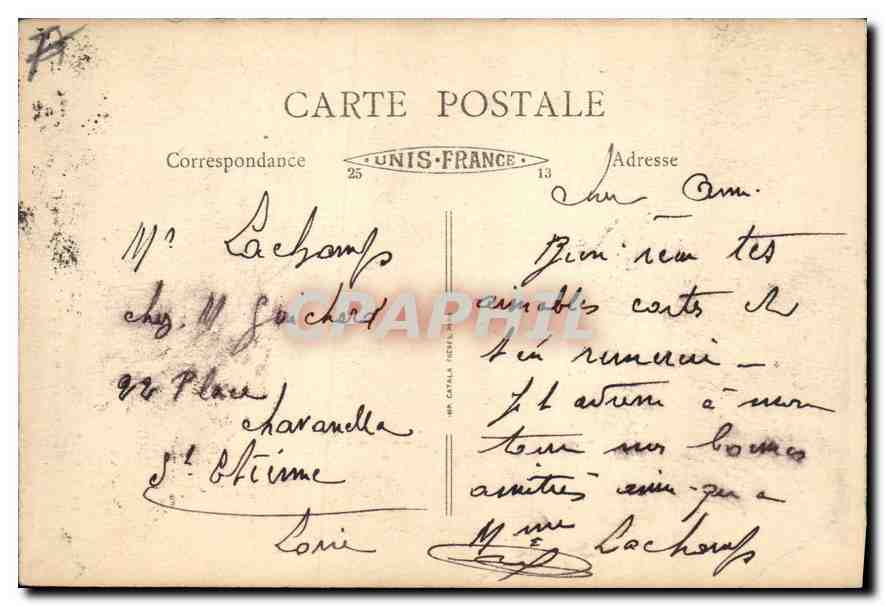 CARTE POSTALE
Correspondance
UNIS-FRANCE
25
13
Adresse
Mr Lachamp
chez M Guichard
22 Place
Chavanelle
St Etienne
Loire
IMP. CATALA FRÈRES
Cher Ami.
Bien reçu tes
aimables cartes et
t'en remercie —
Je t'adresse à mon
tour mes bonnes
amitiés ainsi qu'à
Mme Lachamp
CPAPHIL